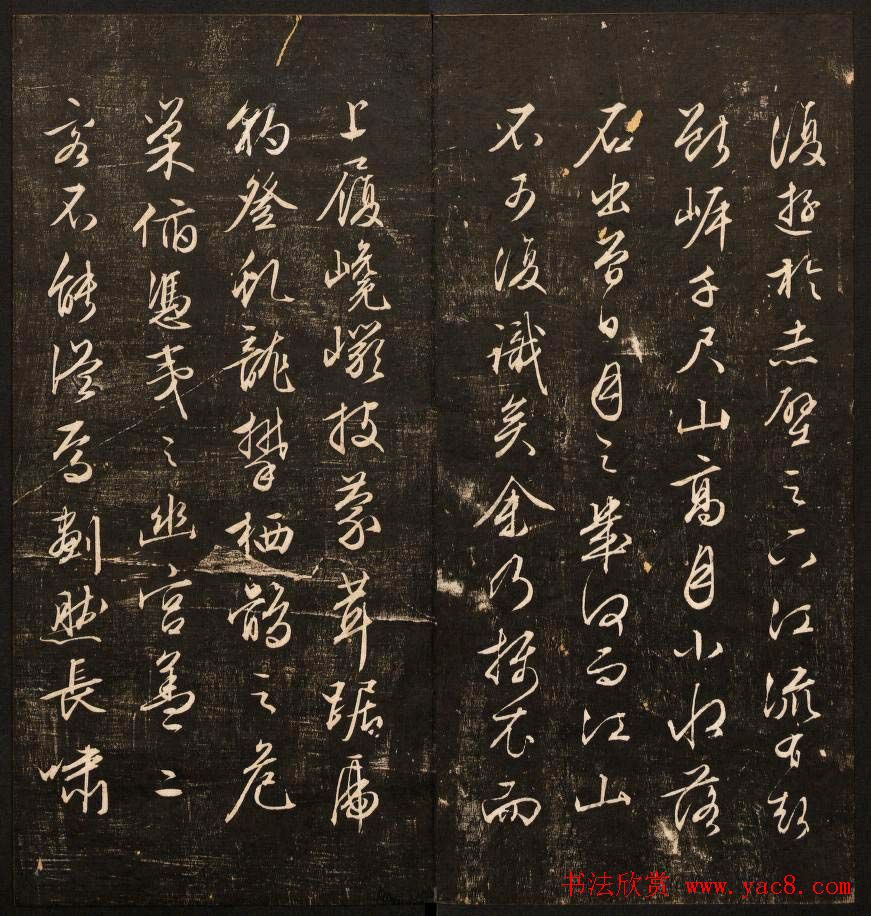 復遊於赤壁之下江流有聲
斷岸千尺山高月小水落
石出曾日月之幾何而江山
不可復識矣余乃攝衣而
上履巉巖披蒙茸踞虎
豹登虬龍攀栖鶻之危
巢俯憑夷之幽宮蓋二
客不能從焉劃然長嘯
书法欣赏 www.yac8.com